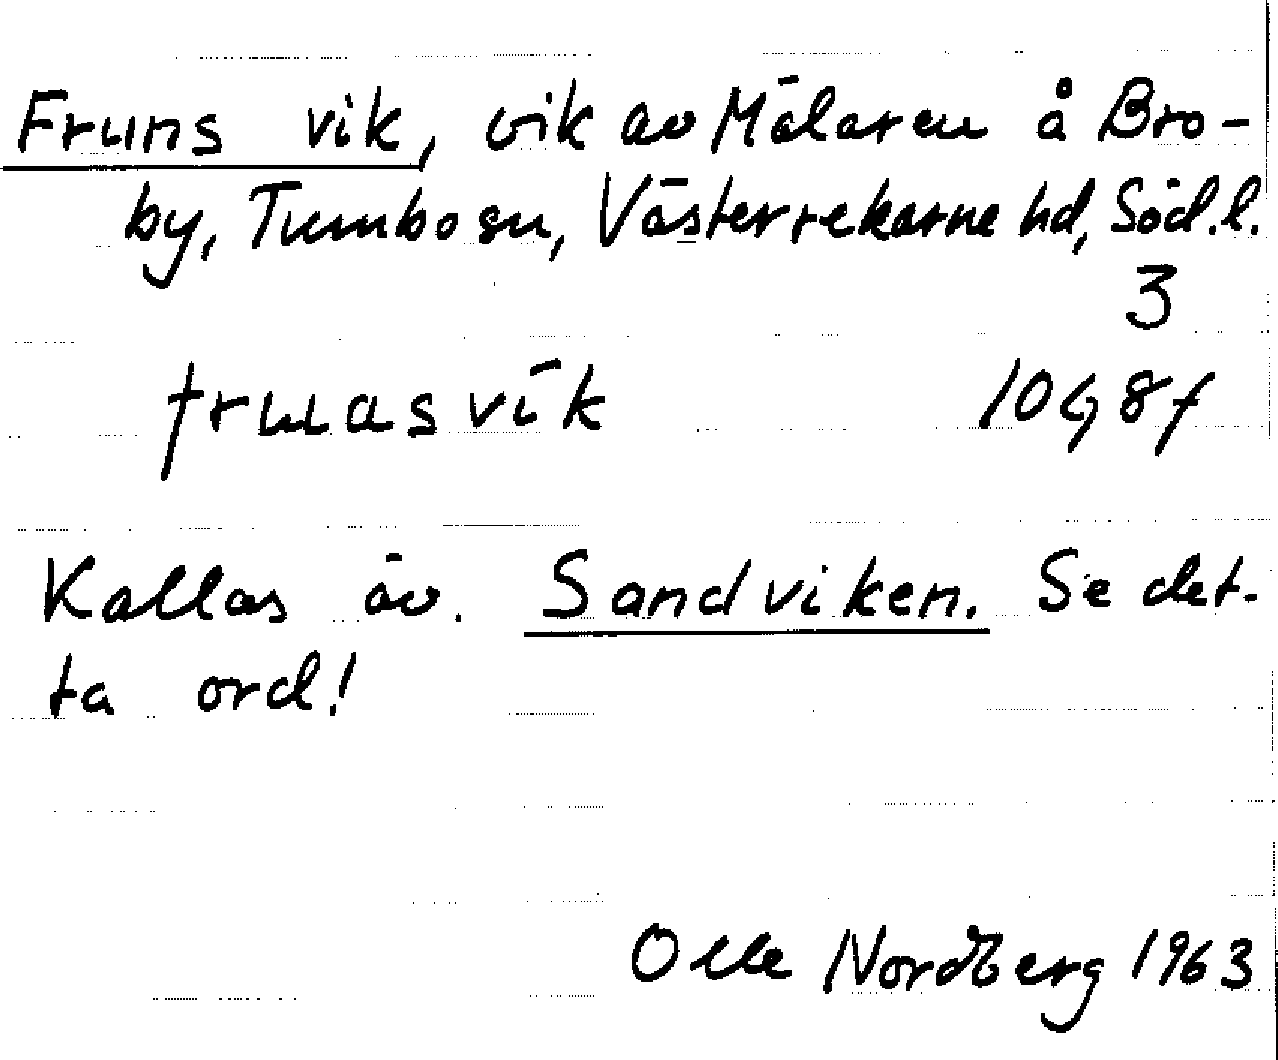 Fruns vik, vik av Mälaren å Bro-
by, Tumbo sn, Västerrekarne hd, Söd.l.
3
fruasvik 10G8f
Kallas äv. Sandviken. Se det-
ta ord!
Olle Nordberg 1963